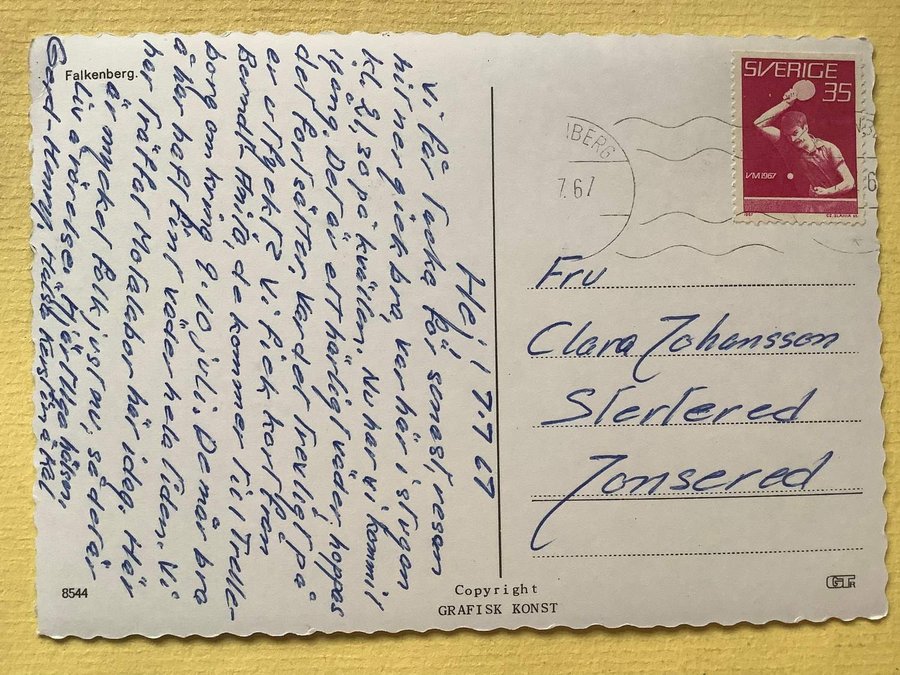 Falkenberg.
Hej! 7.7 67
Vi får tacka för senast, resan
hit ner gick bra, var här i stugan
kl. på kvällen. Nu har vi kommit
igång. Det är ett härligt väder, hoppas
det fortsätter. Var det trevligt på
er utflykt? Vi fick kort från
Berndt Anita, de kommer till Trelle-
borg omkring 9.10 juli. De mår bra
å har haft fint väder hela tiden. Vi
har träffat Motalabor här idag. Här
är mycket folk just nu, så det är
liv å rörelse. Hjärtliga hälsn
Gerd-Henry Hasse Kerstin å
8544
Copyright
GRAFISK KONST
SVERIGE
35
VM 1967
1967
CZ. SLANIA SC
BERG
7.67
Fru
Clara Johansson
Stertered
Jonsered